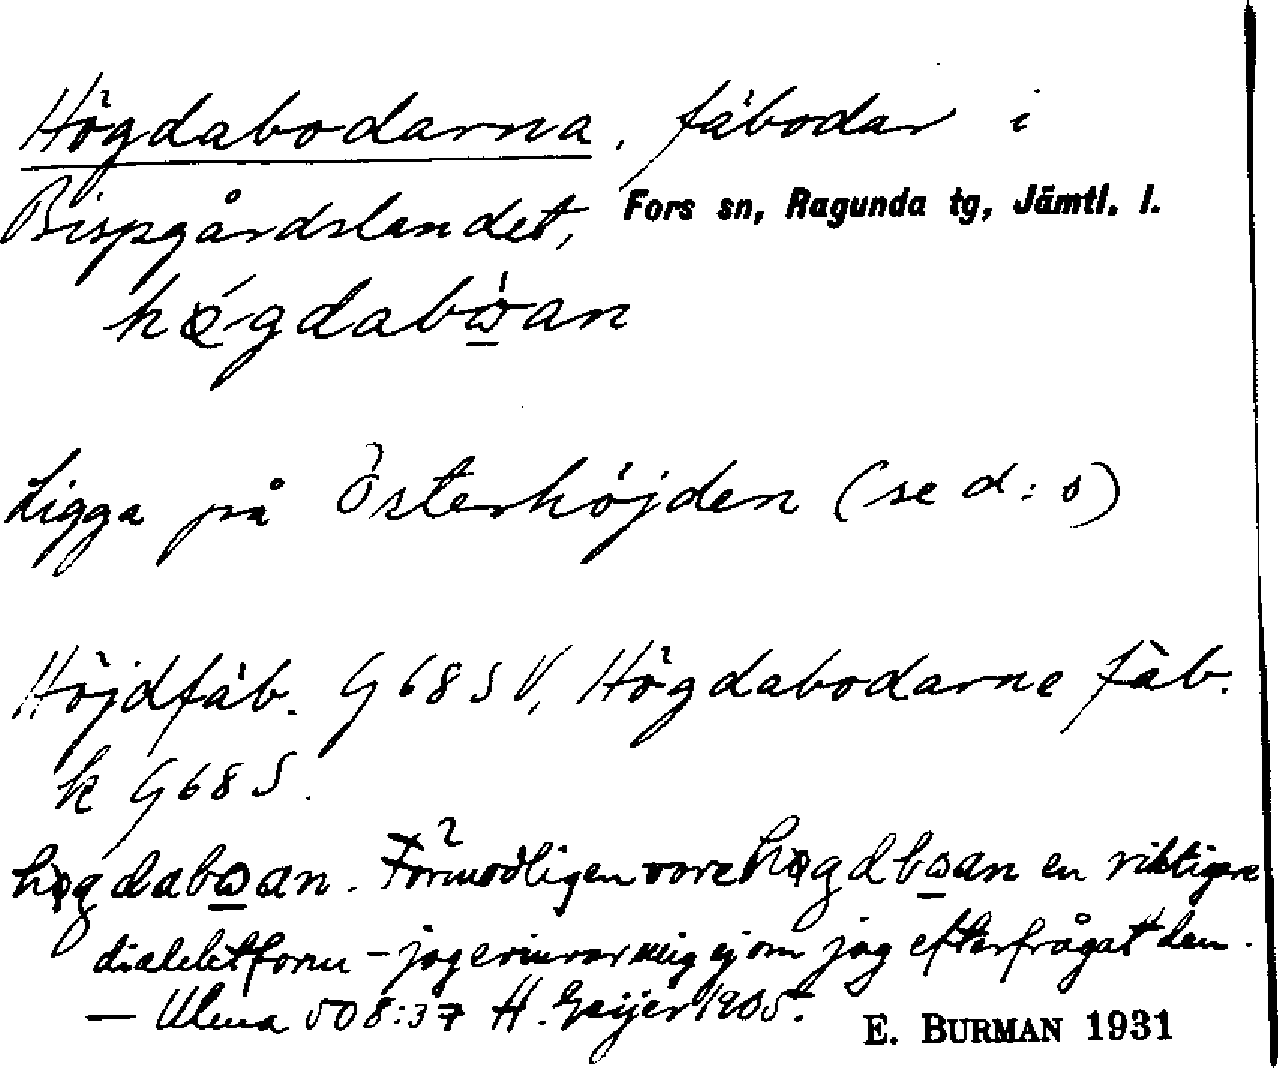 Högdabodarna, fäbodar i
Bispgårdslandet, Fors sn, Ragunda tg, Jämtl. l.
hǿgdabὼ̲an
Ligga på Österhöjden (se d:o)
Höjdfäb. G 68 S V, Högdabodarne fäb.
k G 68 S.
høgdabω̲an. Förmodligen vore høgdbω̲an en riktigare
dialektform – jag erinrar mig ej om jag efterfrågat den.
— Ulma 508:37 H. Geijer 1905.
E. BURMAN 1931